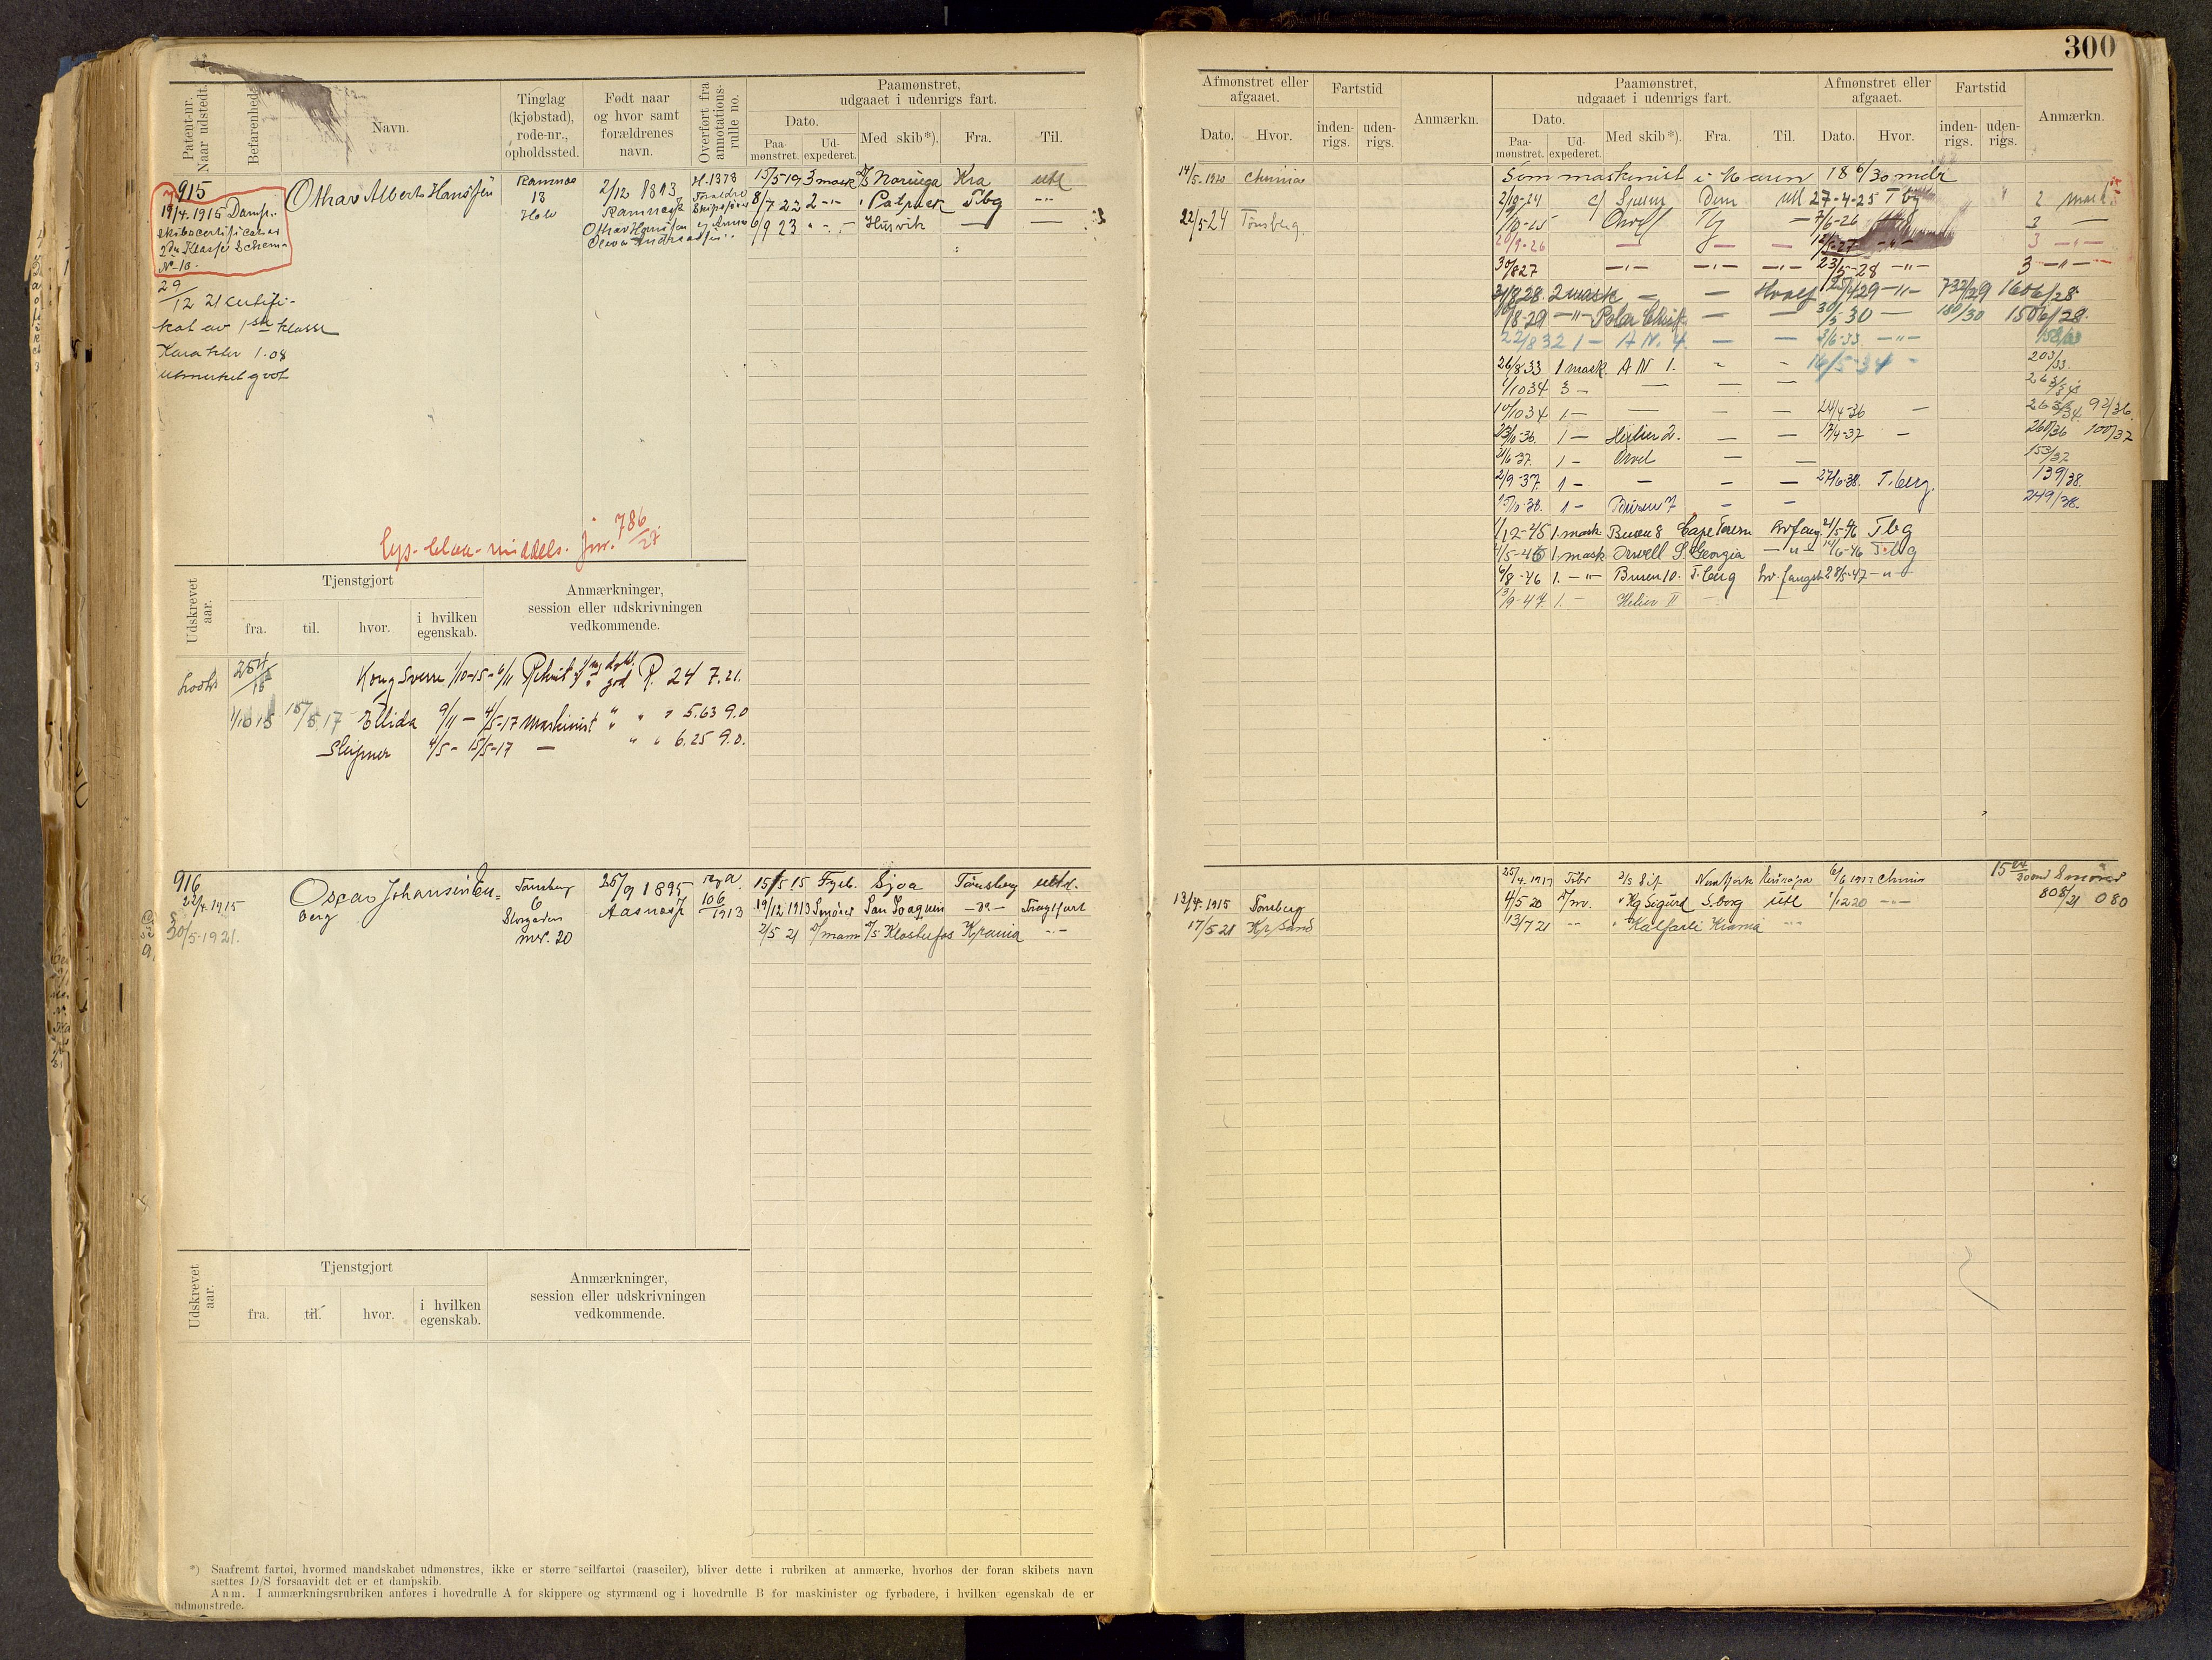 300
Patent-nr. Naar udstedt.
Befarenhed.
Navn.
Tinglag (kjøbstad), rode-nr., opholdssted.
Født naar og hvor samt forældrenes navn.
Overført fra annotations-rulle no.
Paamønstret, udgaaet i udenrigs fart.
Dato.
Paa-mønstret.
Ud-expederet.
Med skib*).
Fra.
Til.
Afmønstret eller afgaaet.
Dato.
Hvor.
Fartstid
inden-rigs.
uden-rigs.
Anmærkn.
Paamønstret, udgaaet i udenrigs fart.
Dato.
Paa-mønstret.
Ud-expederet.
Med skib*).
Fra.
Til.
Afmønstret eller afgaaet.
Dato.
Hvor.
Fartstid
inden-rigs.
uden-rigs.
Anmærkn.
915
19/4.1915 Damp-
skibscertificat av
2den Klasse Schema
No 10.
29/12 21 certifi-
kat av 1ste klasse
Karakter 1.08
utmerket godt
Othar Alberts Hansen
Ramnes
13
2/12 1893
Ramnes
Othar Hansen
H. 1378
15/5 19 3 mask D/S Noruega Kra utl
8/7 22 2 -"- " Patrick Tbg -"-
6/9 23 " - " - Husvik — —
14/5-1920 Chrnia
22/5-24 Tønsberg
Som maskinist i Marin 18 6/30 mdr
2/9-24 Dem utl 27-4-25 Tbg 2 mask
1/10-25 Orwell Tbg — 7/6-26 3 —
20/9-26 — — — 12/5-27 -"- 3 -"-
30/8 27 -"- -"- -"- 23/5-28 -"- 3 -"-
31/8 28. 2 mask — — Hvalf 25/4 29 -"- 732/29 1606/28
18-29 -"- Polar — — 30/5 30 — 180/30 1506/28.
22/8 32 1 — A N. 4. — — 3/6-33 -"- 158/33
26/8 33 1 mask. A N 1. - - 16/5-34 - 203/33.
1/10 34 3 - — — — 263/34
10/10 34 1 — — — — 24/4-36 — 263/34 92/36.
23/10-36. 1 — Helier 2. — — 17/4-37 — 260/36 100/37
21/6-37. 1 - Orvel — — 153/37
2/9-37. 1 - — — — 27/6-38. T.berg. 139/38.
15/10-38. 1 - Busen 7 — — 249/38.
1/12-45 1. mask Busen 8 Cape Town hvfang 21/5-46 Tbg
4/5-46 1. mask Orwell S. Georgia -"- 14/6-46 T.bg
6/8-46 1. -"- Busen 10. T.berg hv. fangst 28/5-47 -"-
13/9-47 1. — Helier II — —
lys - blaa - middels. jnr. 786/27.
Udskrevet aar.
Tjenstgjort
fra.
til.
hvor.
i hvilken egenskab.
Anmærkninger, session eller udskrivningen vedkommende.
Kong Sverre 1/10-15 - 6/11 Rekrut god R. 24 7.21.
1/10 15 15/5.17 Ellida 9/11 — 4/5-17 Maskinist " " " 5.63 9.0
Sleipner 4/5 - 15/5-17 — " " 6.25 9.0.
916
22/4.1915
30/5-1921.
Oscar Johansen En-
berg
Tønsberg
6
Storgaden
mr. 20
25/9 1895
Aasnes
reg A.
106/1913
15/5 15 Fyrb. Sjoa Tønsberg utld.
19/12 1913 Smører San Joaquin -"- Fragtfart
2/5 21 D/mann D/S Klosterfos Krania -"-
13/4.1915 Tønsberg
17/5 21 Kr.sand
25/4.1917 Fyrbr D/S Sif New York 6/6 1917 Chrnia
4/5 20 D/m. " Kg Sigurd S.borg utl 1/12 20 -"-
13/7 21 -"- " Kalfarli Krania -"-
808/21 080
Udskrevet aar.
Tjenstgjort
fra.
til.
hvor.
i hvilken egenskab.
Anmærkninger, session eller udskrivningen vedkommende.
*) Saafremt fartøi, hvormed mandskabet udmønstres, ikke er større seilfartøi (raaseiler), bliver dette i rubriken at anmærke, hvorhos der foran skibets navn
sættes D/S forsaavidt det er et dampskib.
Anm. I anmærkningsrubriken anføres i hovedrulle A for skippere og styrmænd og i hovedrulle B for maskinister og fyrbødere, i hvilken egenskab de er
udmønstrede.